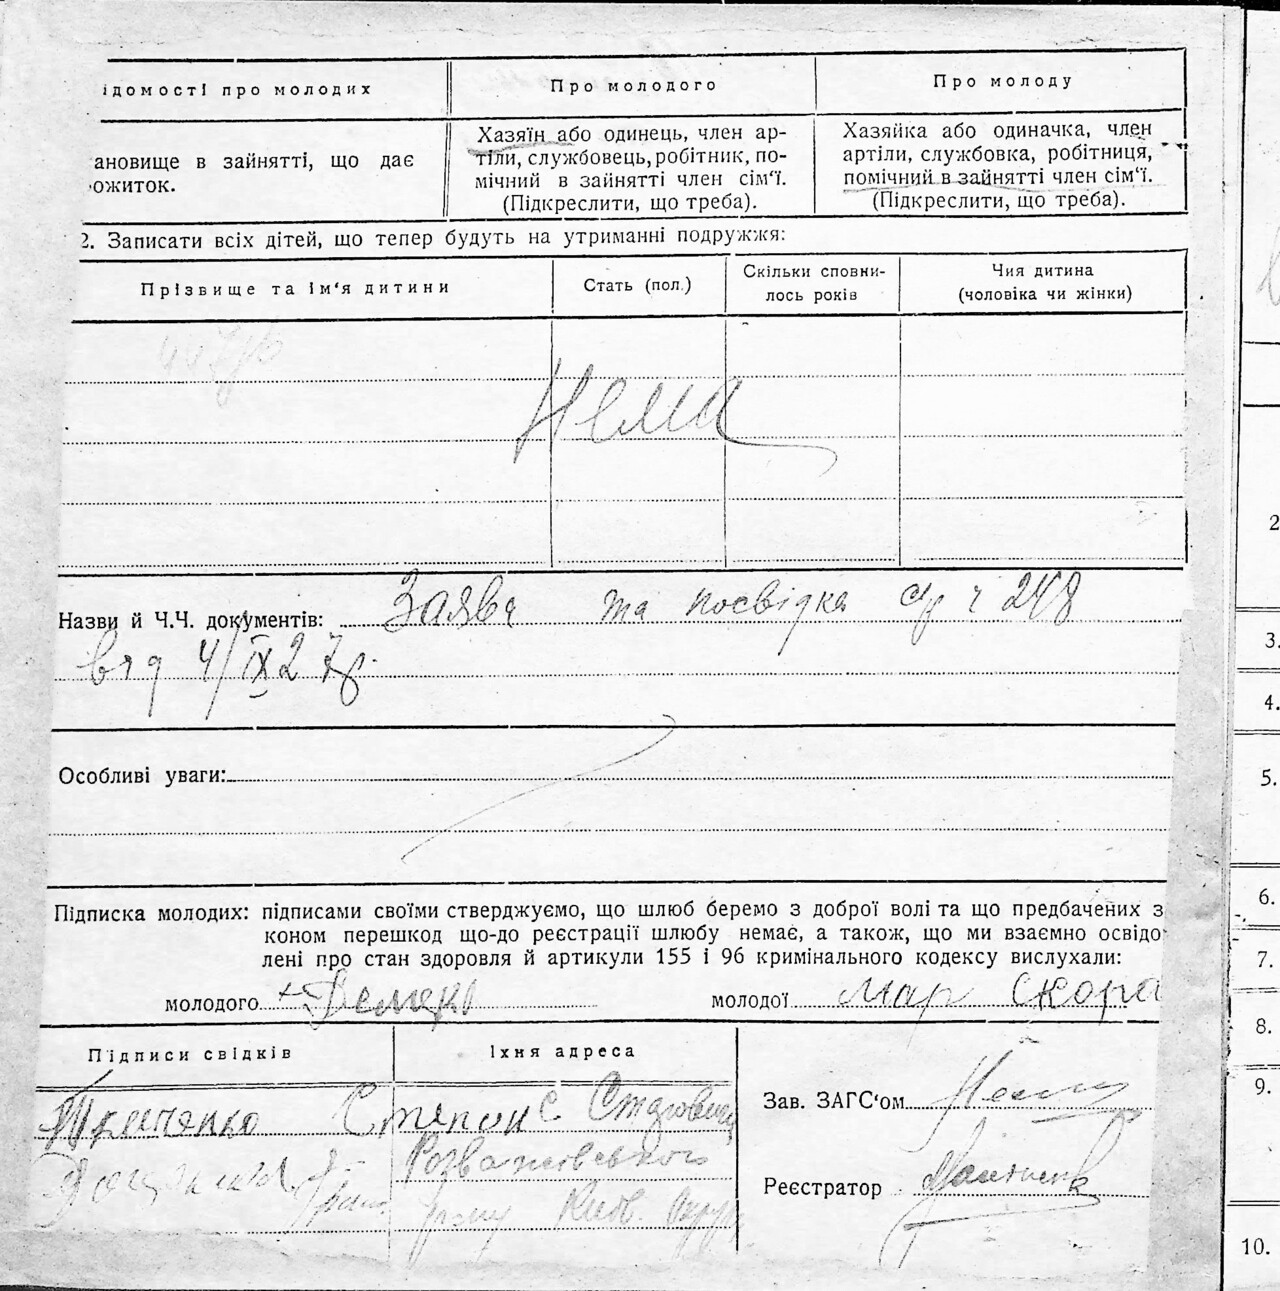 ідомості про молодих
Про молодого
Про молоду
ановище в зайнятті, що дає
ожиток.
Хазяїн або одинець, член ар-
тіли, службовець, робітник, по-
мічний в зайнятті член сім'ї.
(Підкреслити, що треба).
Хазяйка або одиначка, член
артіли, службовка, робітниця,
помічний в зайнятті член сім'ї.
(Підкреслити, що треба).
2. Записати всіх дітей, що тепер будуть на утриманні подружжя:
Прізвище та ім'я дитини
Стать (пол.)
Скільки сповни-
лось років
Чия дитина
(чоловіка чи жінки)
Нема
Назви й Ч.Ч. документів: Заява та посвідка с/р ч 248
від 4/IX 27 р.
Особливі уваги:
Підписка молодих: підписами своїми стверджуємо, що шлюб беремо з доброї волі та що предбачених з
коном перешкод що-до реєстрації шлюбу немає, а також, що ми взаємно освідо
лені про стан здоровля й артикули 155 і 96 кримінального кодексу вислухали:
молодого
молодої Мар Скора
Підписи свідків
Їхня адреса
Ткаченко Степан
с.
Розважівського
Київ. Окру
Зав. ЗАГС'ом
Реєстратор
2
3.
4.
5.
6.
7.
8.
9.
10.